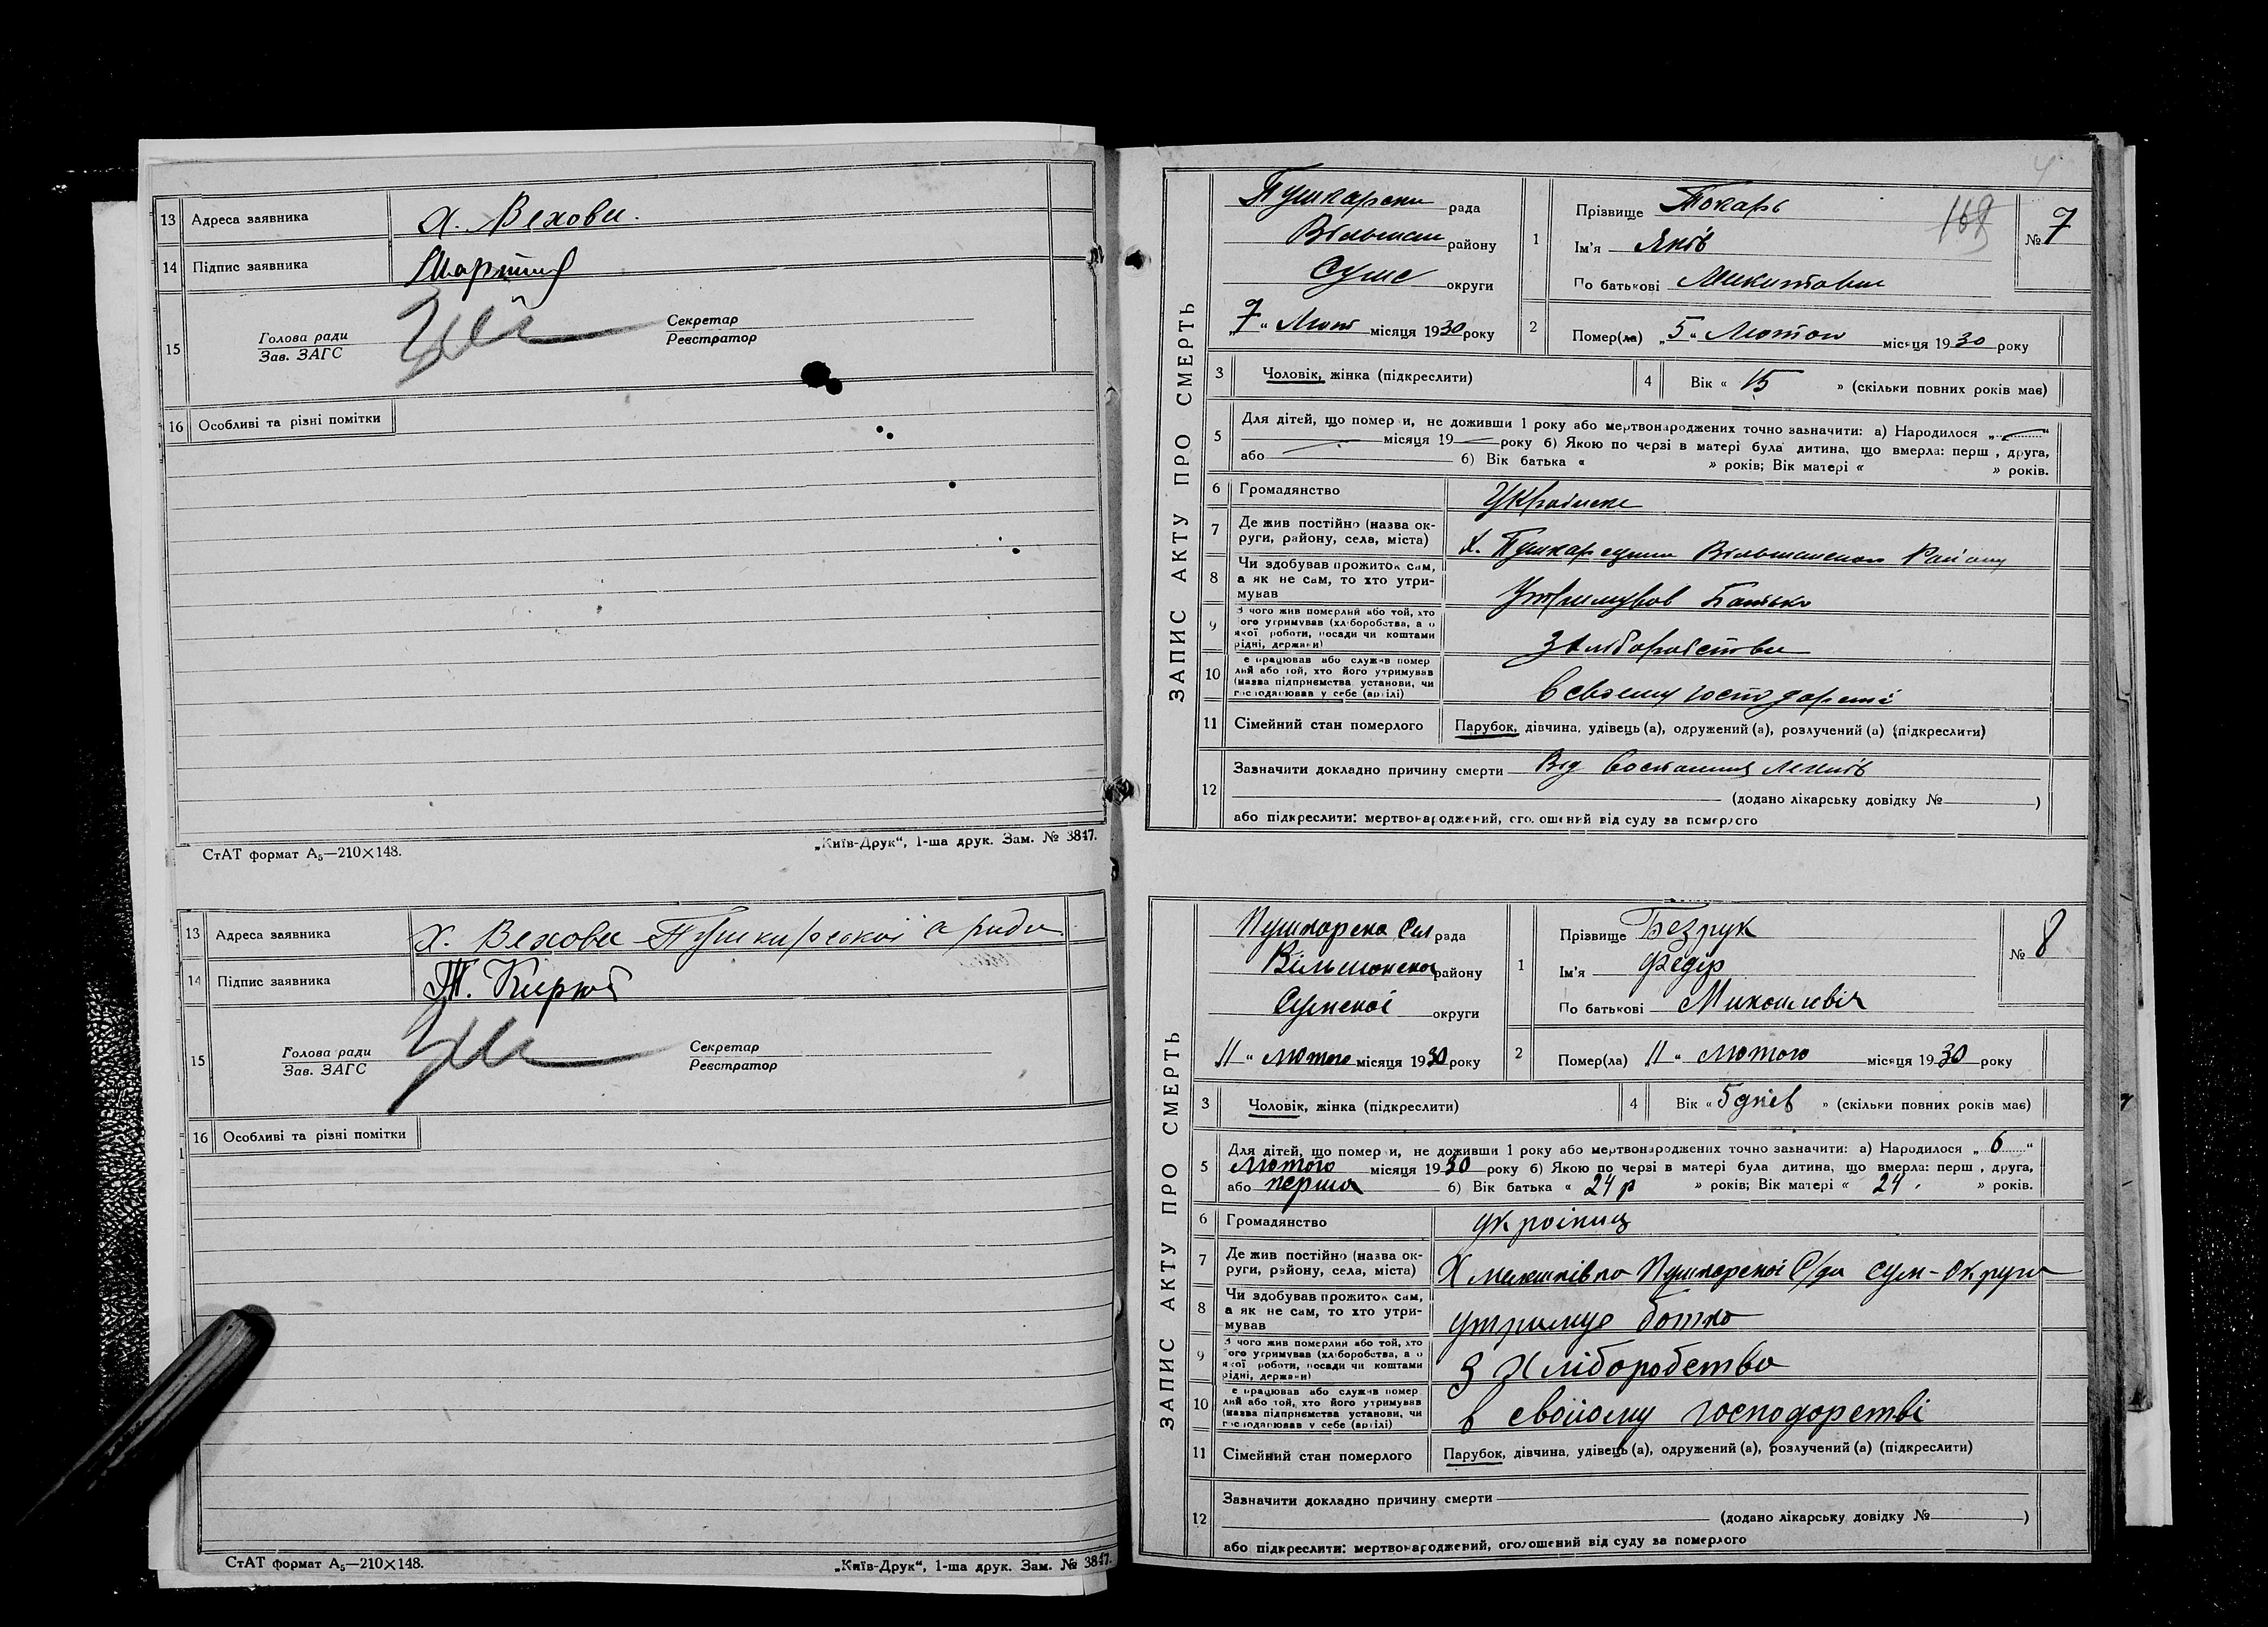 13 Адреса заявника х. Вехове.
14 Підпис заявника Мартин
15 Голова ради
Зав. ЗАГС
Секретар
Реєстратор
16 Особливі та різні помітки
СтАТ формат А5—210×148. „Київ-Друк“, 1-ша друк. Зам. № 3847.
13 Адреса заявника Х. Вехове
14 Підпис заявника
15 Голова ради
Зав. ЗАГС
Секретар
Реєстратор
16 Особливі та різні помітки
СтАТ формат А5—210×148. „Київ-Друк“, 1-ша друк. Зам. № 3847.
ЗАПИС АКТУ ПРО СМЕРТЬ
Пушкарська рада
Вільшан району
Сумс округи
„7“ Лют місяця 1930 року
1 Прізвище Токарь
Ім'я Яків
По батькові Микитович
168
№ 7
2 Помер(ла) „5“ Лютого місяця 1930 року
3 Чоловік, жінка (підкреслити)
4 Вік « 15 » (скільки повних років має)
5 Для дітей, що помер и, не доживши 1 року або мертвонароджених точно зазначити: а) Народилося „ “
місяця 19 року б) Якою по черзі в матері була дитина, що вмерла: перш , друга,
або б) Вік батька « » років; Вік матері « » років.
6 Громадянство Україньске
7 Де жив постійно (назва ок-
руги, району, села, міста) х. Вільшанского Району
8 Чи здобував прожиток сам,
а як не сам, то хто утри-
мував Утримував Батько
9 З чого жив померлий або той, хто
ого утримував (хліборобства, а о
якої роботи, посади чи коштами
рідні, держави) З хліборобства
10 е працював або служив помер
лий або той, хто його утримував
(назва підприємства установи, чи
господарював у себе (артілі) в своему господарстві
11 Сімейний стан померлого Парубок, дівчина, удівець (а), одружений (а), розлучений (а) (підкреслити)
12 Зазначити докладно причину смерти Від
(додано лікарську довідку № )
або підкреслити: мертвонароджений, оголошений від суду за померлого
ЗАПИС АКТУ ПРО СМЕРТЬ
Пушкарська Сил рада
Вільшанског району
Сумської округи
„11“ лютого місяця 1930 року
1 Прізвище Безрук
Ім'я Федір
По батькові
№ 8
2 Помер(ла) „11“ лютого місяця 1930 року
3 Чоловік, жінка (підкреслити)
4 Вік « 5 днів » (скільки повних років має)
5 Для дітей, що помер и, не доживши 1 року або мертвонароджених точно зазначити: а) Народилося „6“
Лютого місяця 1930 року б) Якою по черзі в матері була дитина, що вмерла: перш , друга,
або перша б) Вік батька « 24 р » років; Вік матері « 24 » років.
6 Громадянство україниц
7 Де жив постійно (назва ок-
руги, району, села, міста) Х Пушкарской С/ради Сум-округи
8 Чи здобував прожиток сам,
а як не сам, то хто утри-
мував утримує батко
9 З чого жив померлий або той, хто
ого утримував (хліборобства, а о
якої роботи, посади чи коштами
рідні, держави) З хліборобства
10 е працював або служив помер
лий або той, хто його утримував
(назва підприємства установи, чи
господарював у себе (артілі) в свойому господарстві
11 Сімейний стан померлого Парубок, дівчина, удівець (а), одружений (а), розлучений (а) (підкреслити)
12 Зазначити докладно причину смерти
(додано лікарську довідку № )
або підкреслити: мертвонароджений, оголошений від суду за померлого